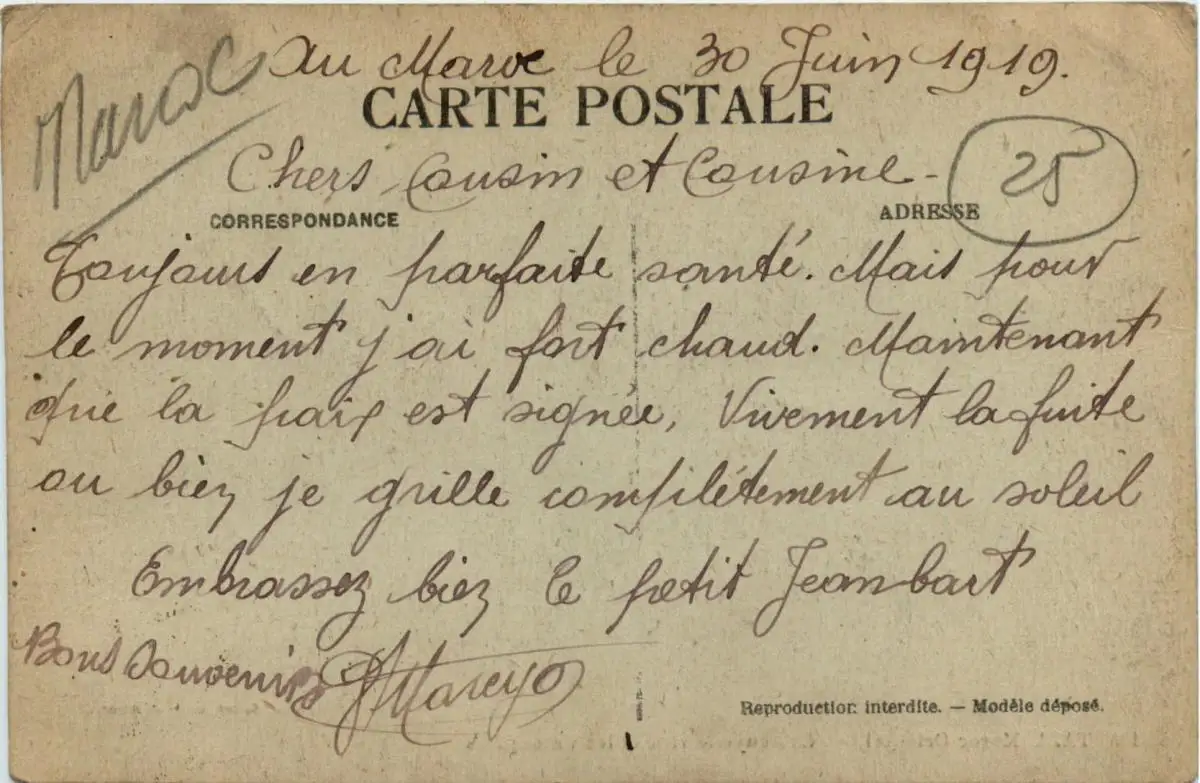 Maroc
Au Maroc le 30 Juin 1919.
CARTE POSTALE
Chers Cousin et Cousine -
25
CORRESPONDANCE
ADRESSE
Toujours en parfaite santé. Mais pour
le moment j'ai fort chaud. Maintenant
que la paix est signée, Vivement la fuite
ou bien je grille complétement au soleil
Embrassez bien le petit Jean-bart
Bons souvenirs
Reproduction interdite. — Modèle déposé.